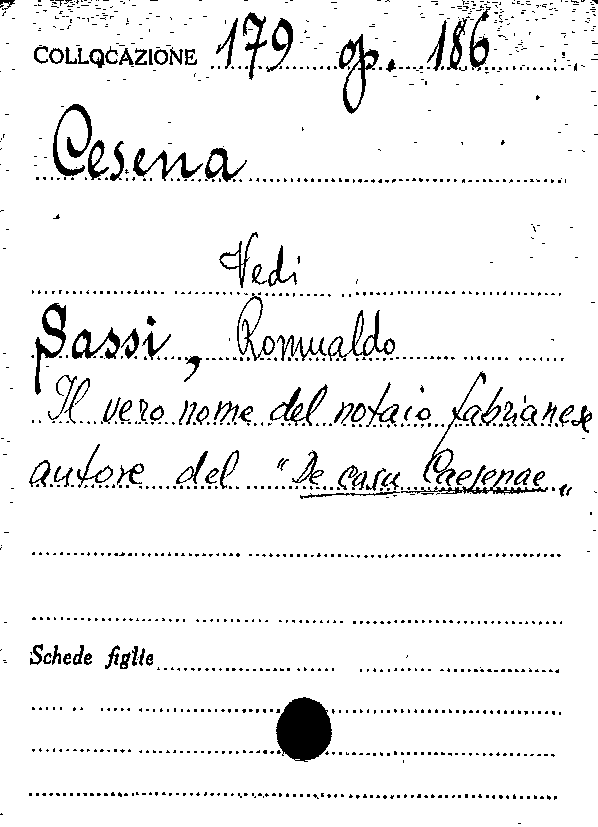 COLLOCAZIONE 179 op. 186
Cesena
Vedi
Sassi, Romualdo
Il vero nome del notaio fabrianese
autore del "De casu Caesenae"
Schede figlie